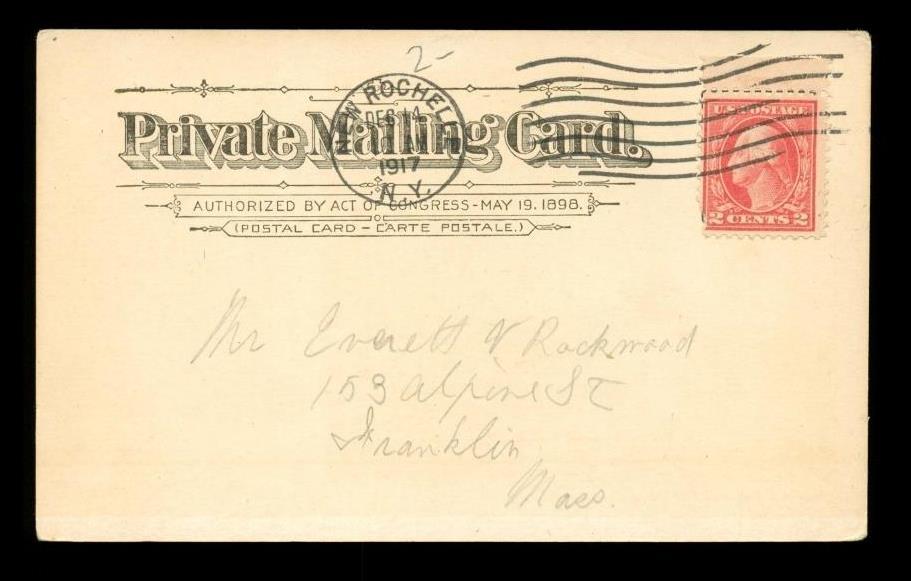 2-
Private Mailing Card.
AUTHORIZED BY ACT OF CONGRESS-MAY 19. 1898.
(POSTAL CARD - CARTE POSTALE.)
NEW ROCHELLE
DEC 14
1917
N. Y.
U.S. POSTAGE
2 CENTS 2
Mr Everett V Rockwood
153 Alpine St
Franklin
Mass.